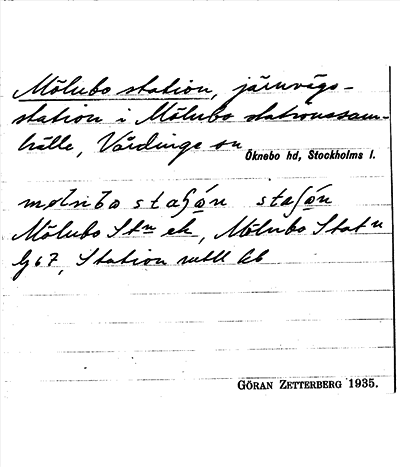 Mölnbo station, järnvägs-
station i Mölnbo stationssam-
hälle, Vårdinge sn
Öknebo hd, Stockholms l.
staʃǿn
Mölnbo Stn ek, Mölnbo Statn
Station
GÖRAN ZETTERBERG 1935.